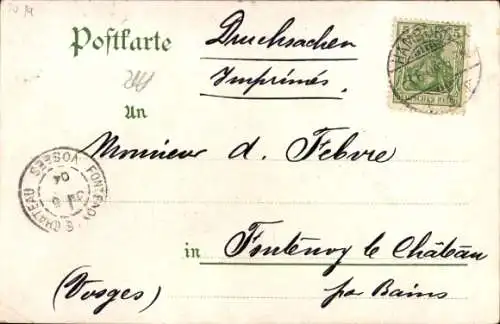 Postkarte
Drucksachen
Imprimés.
5 5
HAMBURG
DEUTSCHES REICH
An
Monsieur d. Febvre
FONTENOY LE CHATEAU VOSGES
04
in Fontenoy le Château
(Vosges) par Bains